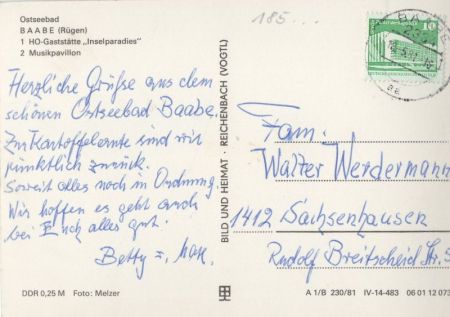 Ostseebad
BAABE (Rügen)
1 HO-Gaststätte „Inselparadies"
2 Musikpavillon
185...
10
BAABE
Herzliche Grüße aus dem
schönen Ostseebad Baabe.
Zur Kartoffelernte sind wir
pünktlich zurück.
Soweit alles noch in Ordnung.
Wir hoffen es geht auch
bei Euch alles gut.
Betty u. Max
BILD UND HEIMAT · REICHENBACH (VOGTL)
Fam.
Walter Werdermann
1412 Sachsenhausen
Rudolf Breitscheid Str.
DDR 0,25 M Foto: Melzer
A 1/B 230/81 IV-14-483 06 01 12 073